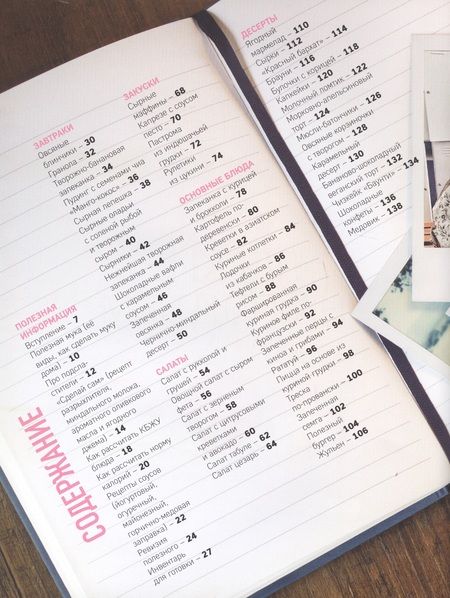 СОДЕРЖАНИЕ
ПОЛЕЗНАЯ
ИНФОРМАЦИЯ
Вступление – 7
Полезная мука (её
виды, как сделать муку
дома) – 10
Про подсла-
стители – 12
«Сделай сам» (рецепт
разрыхлителя,
миндального молока,
ароматного оливкового
масла и ягодного
джема) – 14
Как рассчитать КБЖУ
блюда – 18
Как рассчитать норму
калорий – 20
Рецепты соусов
(йогуртовый,
огуречный,
майонезный,
горчично-медовая
заправка) – 22
Ревизия
полезного – 24
Инвентарь
для готовки – 27
ЗАВТРАКИ
Овсяные
блинчики – 30
Гранола – 32
Творожно-банановая
запеканка – 34
Пудинг с семенами чиа
«Манго-кокос» – 36
Сырная лепешка – 38
Сырные оладьи
с соленой рыбой
и творожным
сыром – 40
Сырники – 42
Нежнейшая творожная
запеканка – 44
Шоколадные вафли
с карамельным
соусом – 46
Запеченная
овсянка – 48
Чернично-миндальный
десерт – 50
САЛАТЫ
Салат с рукколой и
грушей – 54
Овощной салат с сыром
фета – 56
Салат с зерненым
творогом – 58
Салат с цитрусовыми
креветками
и авокадо – 60
Салат табуле – 62
Салат цезарь – 64
ЗАКУСКИ
Сырные
маффины – 68
Капрезе с соусом
песто – 70
Пастрома
из индюшачьей
грудки – 72
Рулетики
из цукини – 74
ОСНОВНЫЕ БЛЮДА
Запеканка с курицей
и брокколи – 78
Картофель по-
деревенски – 80
Креветки в азиатском
соусе – 82
Куриные котлетки – 84
Лодочки
из кабачков – 86
Тефтели с бурым
рисом – 88
Фаршированная
куриная грудка – 90
Куриное филе по-
французски – 92
Запеченные перцы с
киноа и грибами – 94
Рататуй – 96
Пицца на основе из
куриной грудки – 98
Треска
по-провански – 100
Запеченная
семга – 102
Полезный
бургер – 104
Жульен – 106
ДЕСЕРТЫ
Ягодный
мармелад – 110
Сырки – 112
«Красный бархат» – 114
Брауни – 116
Булочки с корицей – 118
Капкейки – 120
Молочный ломтик – 122
Морковно-апельсиновый
торт – 124
Мюсли-батончики – 126
Овсяные корзиночки
с творогом – 128
Карамельный
десерт – 130
Бананово-шоколадный
веганский торт – 132
Циизкейк «Баунти» – 134
Шоколадные
конфеты – 136
Медовик – 138